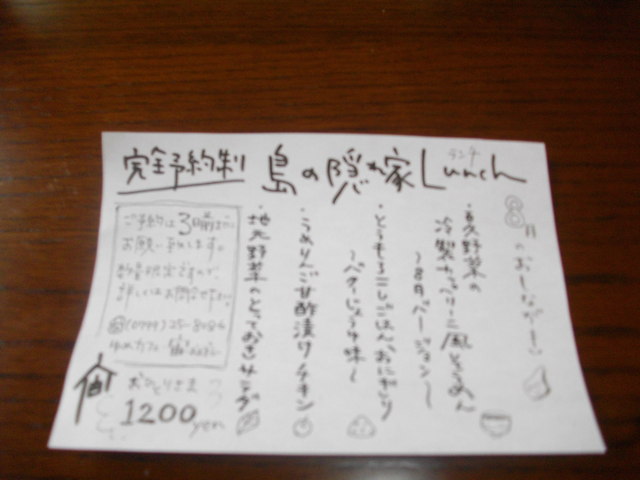 完全予約制 島の隠れ家Lunch
ランチ
8月のおしながき
・夏野菜の
冷製カッペリーニ風そうめん
〜8月バージョン〜
・とうもろこしごはんのおにぎり
〜バターじょうゆ味〜
・うめりんご甘酢漬けチキン
・地元野菜のとっておきサラダ
ご予約は3日前までに
お願い致します。
数量限定ですので
詳しくはお問合せ下さい
おひとりさま
1200yen